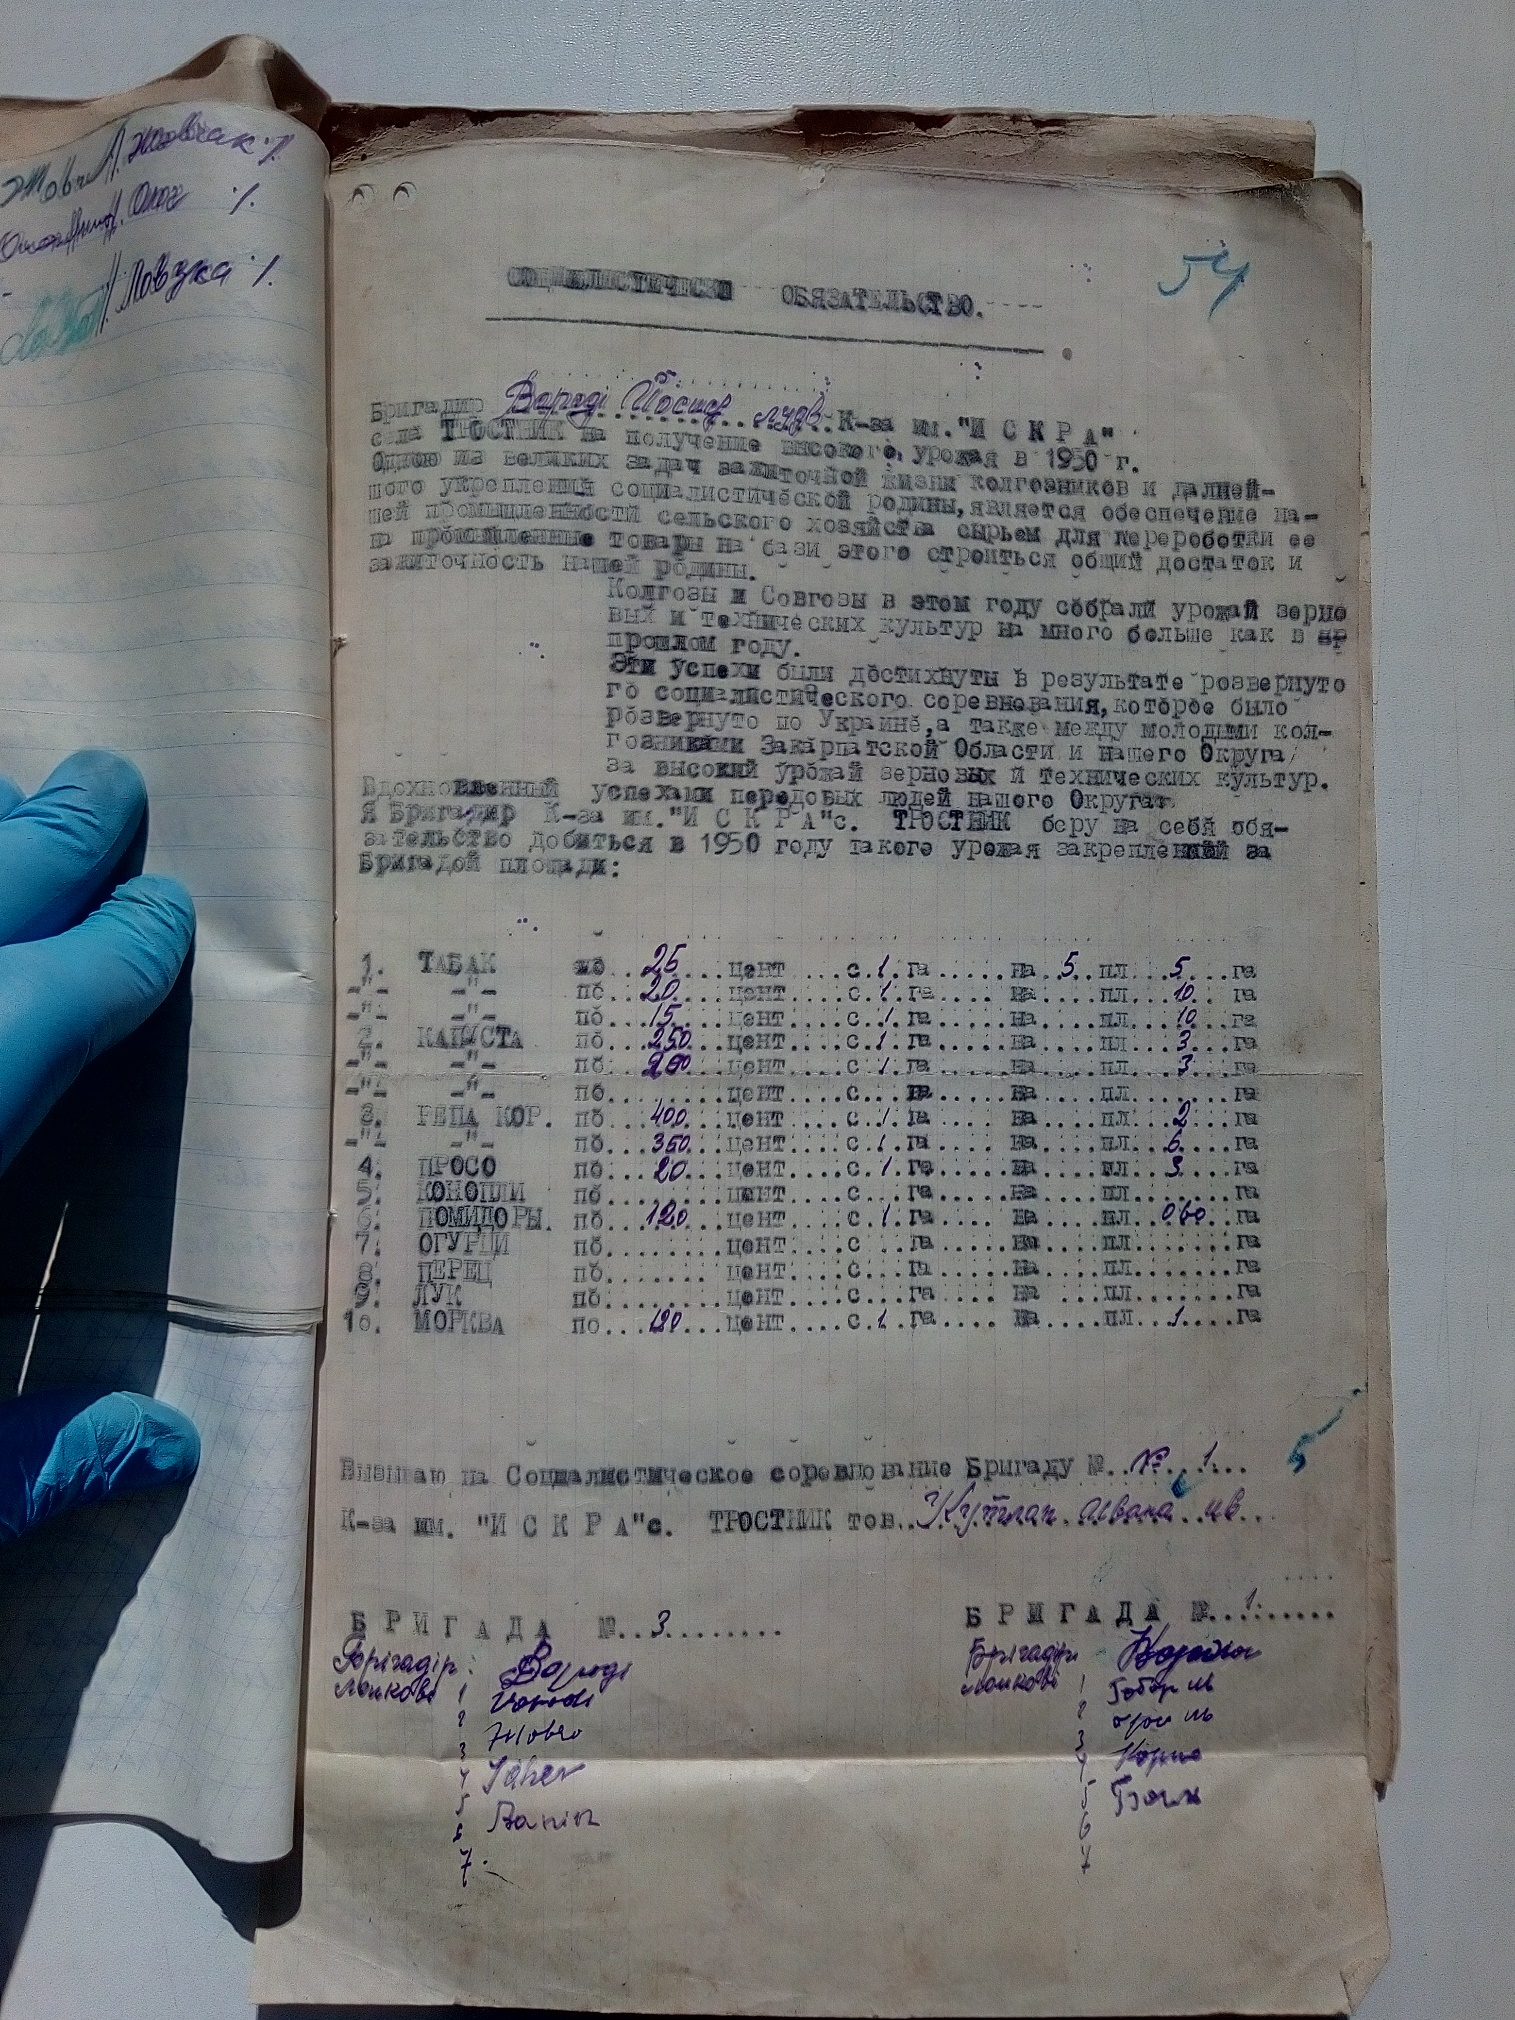 Жовчак ·/.
Олах ·/.
Ловзка ·/.
54
СОЦИАЛИСТИЧЕСКО ОБЯЗАТЕЛЬСТВО.
Бригадир Вароді Йосиф людв. К-за им."И С К Р А"
села ТРОСТНИК на получение высокого, урожая в 1950 г.
Одною из великих задач зажиточной жизни колгозников и далней-
шого укрепления социалистической родины, является обеспечение на-
шей промышленности сельского хозяйства сырьем для переработки ее
на промышленные товары на бази этого строиться общий достаток и
зажиточность нашей родины.
Колгозы и Совгозы в этом году собрали урожай зерно
вых и технических культур на много больше как в пр
прошлом году.
Эти успехи были достихнуты в результате розвернуто
го социалистического соревнования, которое было
розвернуто по Украине, а также между молодыми кол-
гозниками Закарпатской Области и нашего Округа,
за высокий урожай зерновых и технических культур.
Вдохновленный успехами передовых людей нашого Округа
Я Бригадир К-за им."И С К Р А"с. ТРОСТНИК беру на себя обя-
зательство добиться в 1950 году такого урожая закрепленной за
Бригадой площади:
1. ТАБАК по...25....цент....с.1.га......на..5..пл...5....га
-"- -"- по...20....цент....с.1.га......на.....пл...10...га
-"- -"- по...15....цент....с.1.га......на.....пл...10...га
2. КАПУСТА по...250...цент....с.1.га......на.....пл...3....га
-"- -"- по...200...цент....с.1.га......на.....пл...3....га
-"- -"- по.........цент....с...га......на.....пл........га
3. РЕПА КОР. по...400...цент....с.1.га......на.....пл...2....га
-"- -"- по...350...цент....с.1.га......на.....пл...6....га
4. ПРОСО по...20....цент....с.1.га......на.....пл...3....га
5. КОНОПЛИ по.........цент....с...га......на.....пл........га
6. ПОМИДОРЫ. по...120...цент....с.1.га......на.....пл..060...га
7. ОГУРЦИ по.........цент....с...га......на.....пл........га
8. ПЕРЕЦ по.........цент....с...га......на.....пл........га
9. ЛУК по.........цент....с...га......на.....пл........га
10. МОРКВА по...120...цент....с.1.га......на.....пл...1....га
5
Вызываю на Социалистическое соревнование Бригаду №..№...1...
К-за им. "И С К Р А"с. ТРОСТНИК тов..Кутлан Ивана ив...
Б Р И Г А Д А №..3........
Б Р И Г А Д А №...1.......
Бригадір: Вароді
Бригадір
ланкові 1 Varodi
ланкові 1
2 Жовго
2
3
3
4
4
5
5
6
6
7.
7